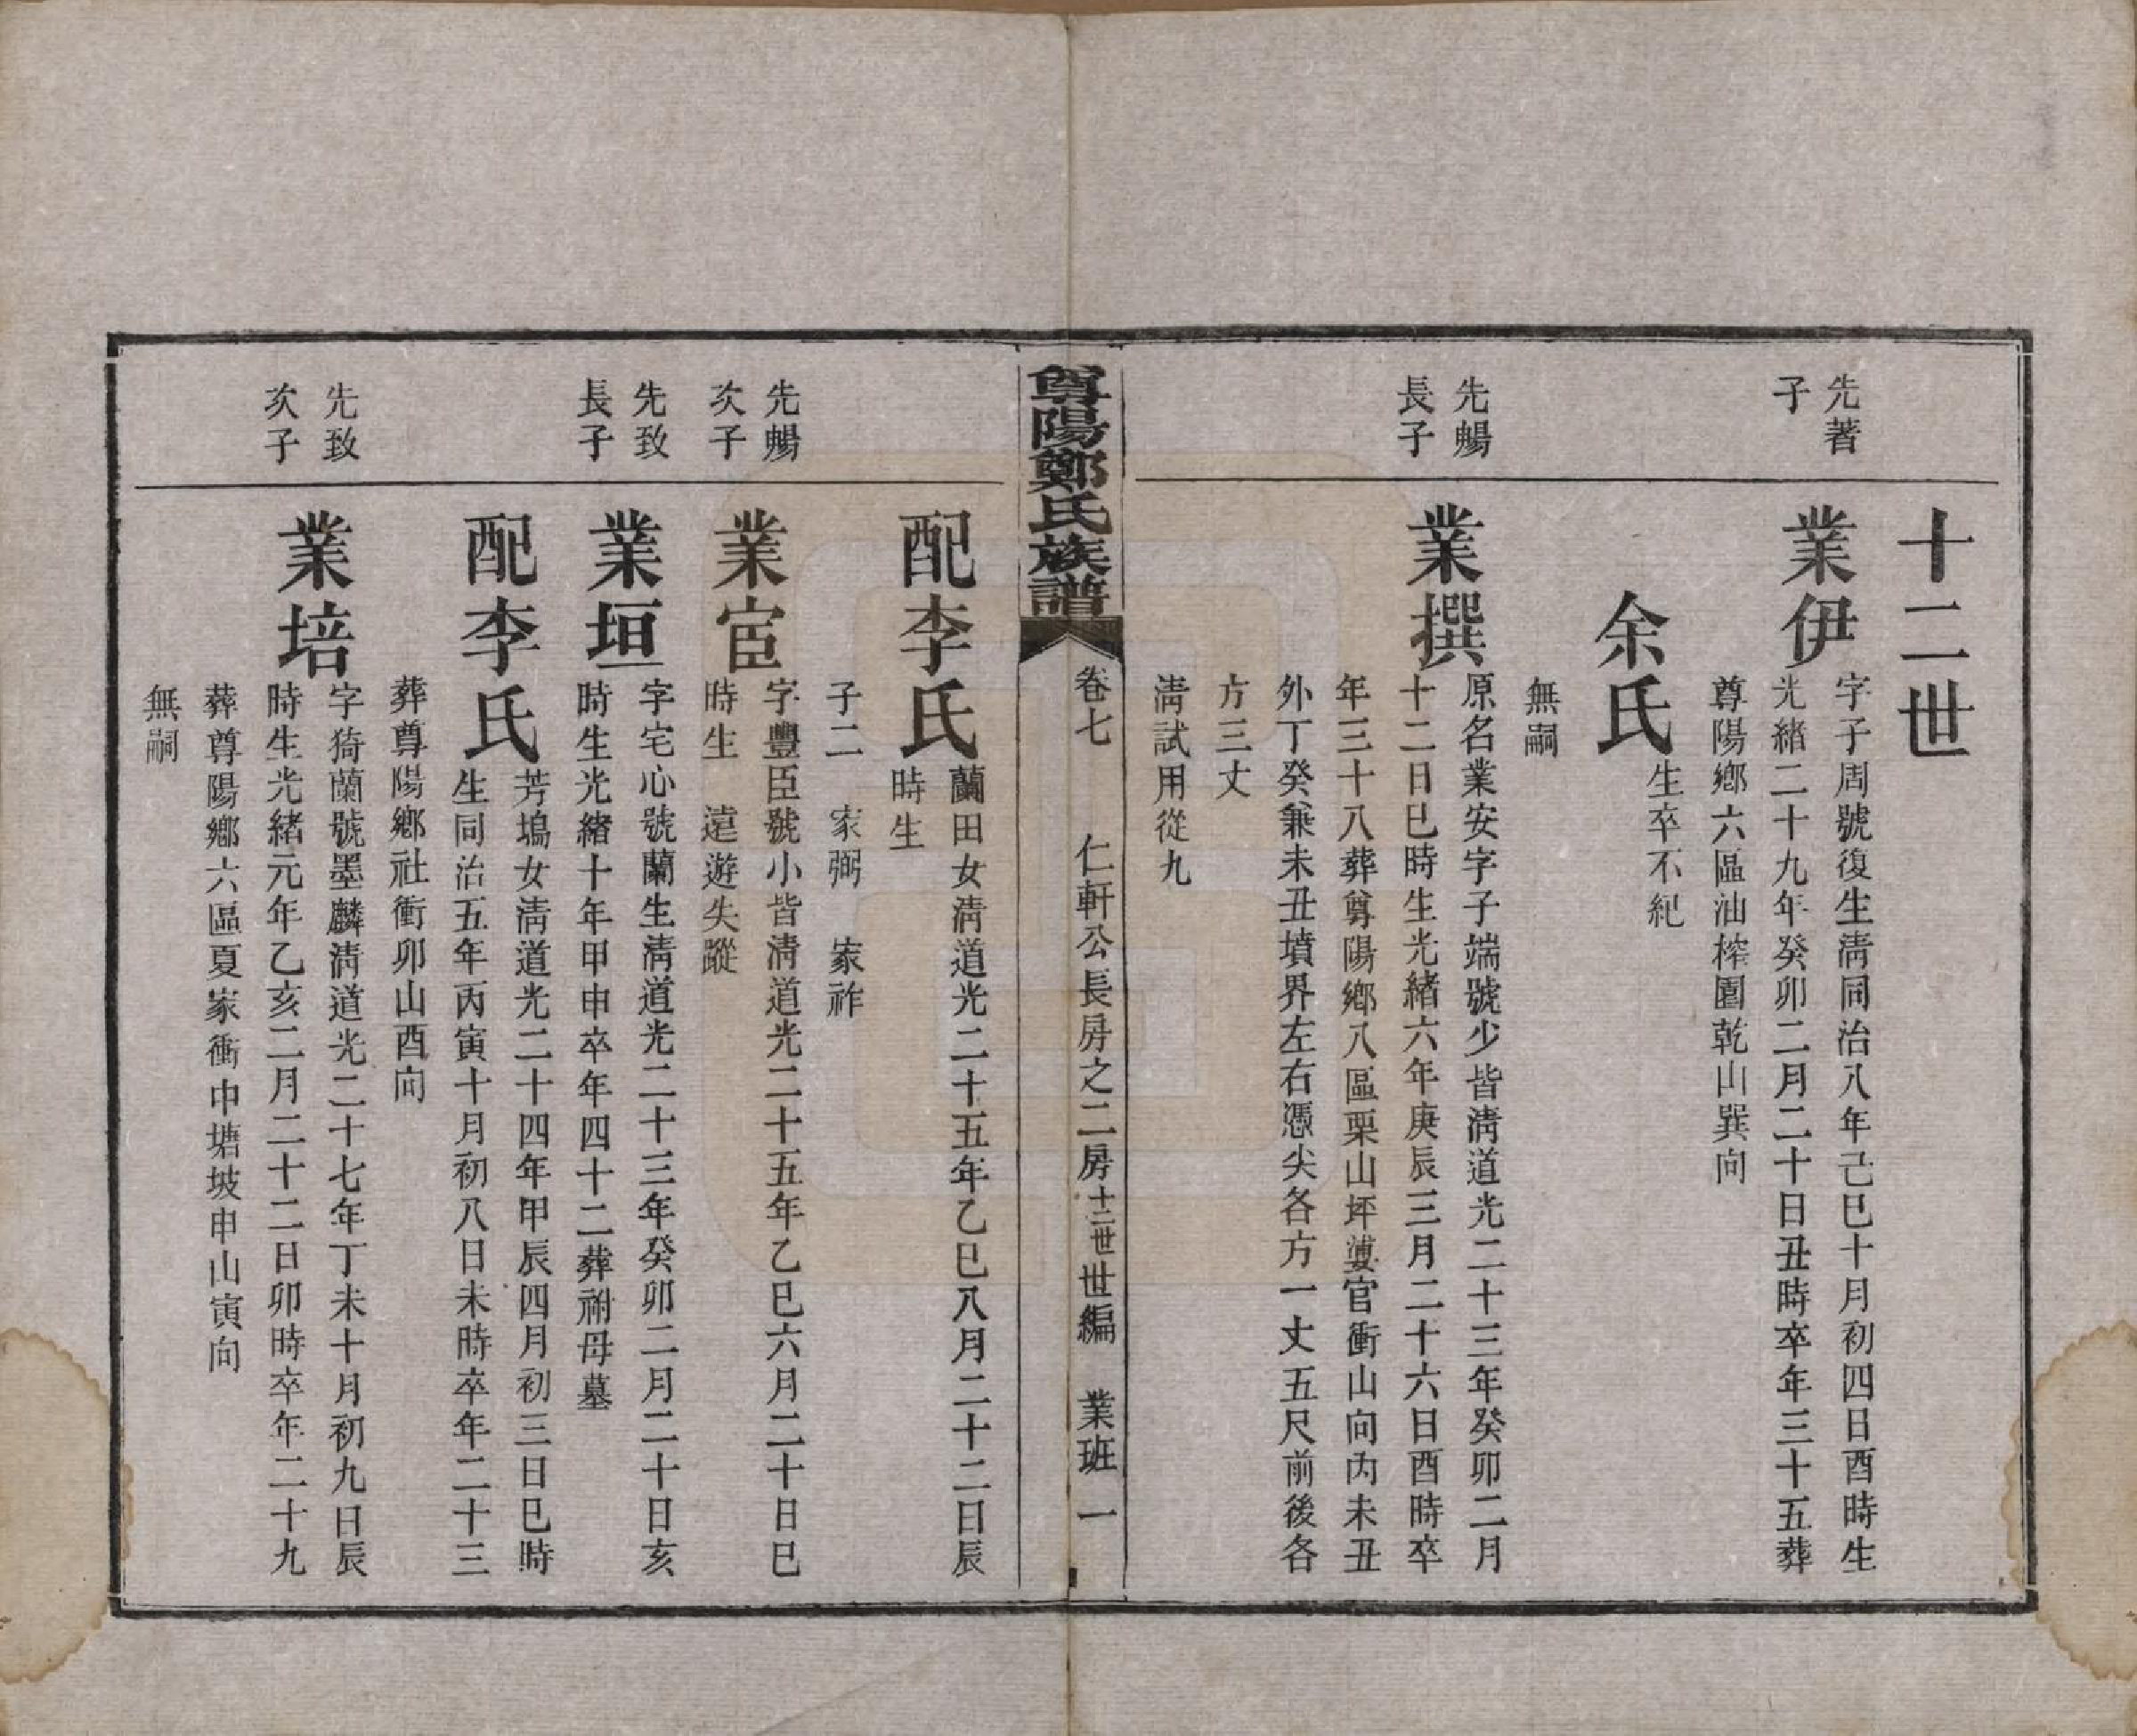 十二世
先著
子
業伊
字子周號復生淸同治八年己巳十月初四日酉時生
光緒二十九年癸卯二月二十日丑時卒年三十五葬
尊陽鄉六區油榨園乾山巽向
余氏
生卒不紀
無嗣
先暢
長子
業撰
原名業安字子端號少皆淸道光二十三年癸卯二月
十二日巳時生光緒六年庚辰三月二十六日酉時卒
年三十八葬尊陽鄉八區栗山坪官衝山向內未丑
外丁癸兼未丑墳界左右憑尖各方一丈五尺前後各
方三丈
淸試用從九
尊陽鄭氏族譜
卷七 仁軒公長房之二房十二世世編 業班 一
配李氏
蘭田女淸道光二十五年乙巳八月二十二日辰
時生
子二 家弼 家祚
先暢
次子
業宦
字豐臣號小皆淸道光二十五年乙巳六月二十日巳
時生 遠遊失蹤
先致
長子
業垣
字宅心號蘭生淸道光二十三年癸卯二月二十日亥
時生光緒十年甲申卒年四十二葬祔母墓
配李氏
芳塢女淸道光二十四年甲辰四月初三日巳時
生同治五年丙寅十月初八日未時卒年二十三
葬尊陽鄉社衝卯山酉向
先致
次子
業培
字猗蘭號墨麟淸道光二十七年丁未十月初九日辰
時生光緒元年乙亥二月二十二日卯時卒年二十九
葬尊陽鄉六區夏家衝中塘坡申山寅向
無嗣